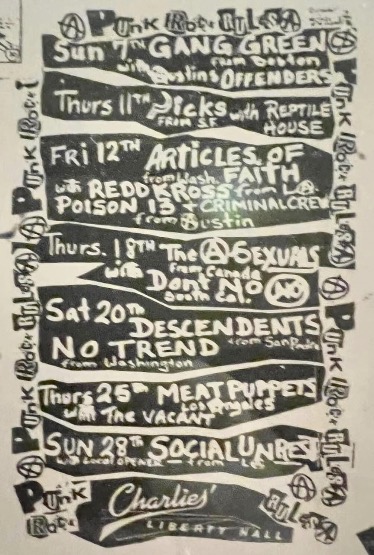 PUNK ROCK RULES
SUN 7TH GANG GREEN
from Boston
with Austins OFFENDERS
Thurs 11TH Dicks with REPTILE
FROM S.F. HOUSE
FRI 12TH ARTICLES OF
from Wash. FAITH
with REDD KROSS from LA
POISON 13 + CRIMINAL CREW
from Austin
Thurs. 18TH The A-SEXUALS
from Canada
with Don't NO NO
South Cal.
Sat 20th DESCENDENTS
NO TREND from San Pedro
from Washington
Thurs 25th MEAT PUPPETS
Los Angeles
with The VACANT
SUN 28TH SOCIAL UNREST
with Local OPENER - from
PUNK ROCK RULES
Charlies'
LIBERTY HALL
PUNK ROCK RULES
PUNK ROCK RULES
PUNK ROCK RULES
PUNK ROCK RULES